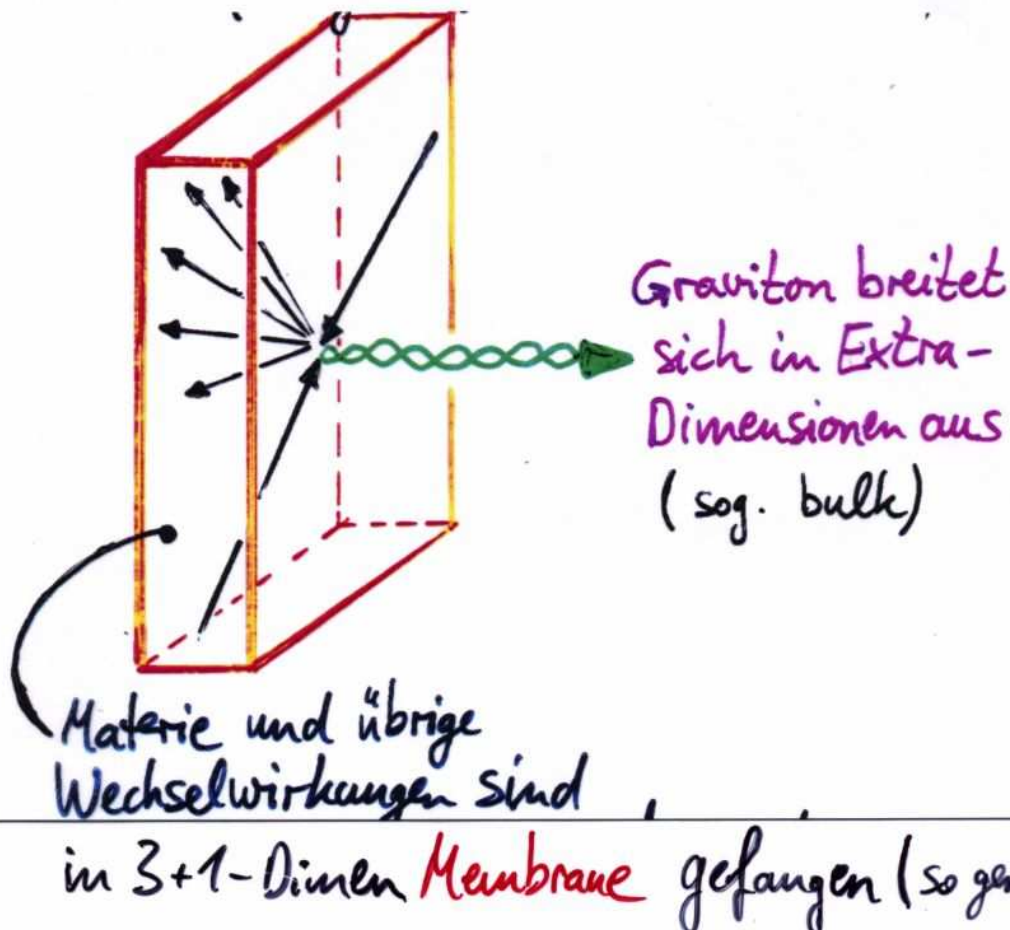 Graviton breitet
sich in Extra-
Dimensionen aus
(sog. bulk)
Materie und übrige
Wechselwirkungen sind
in 3+1-Dimen Membrane gefangen (so gen